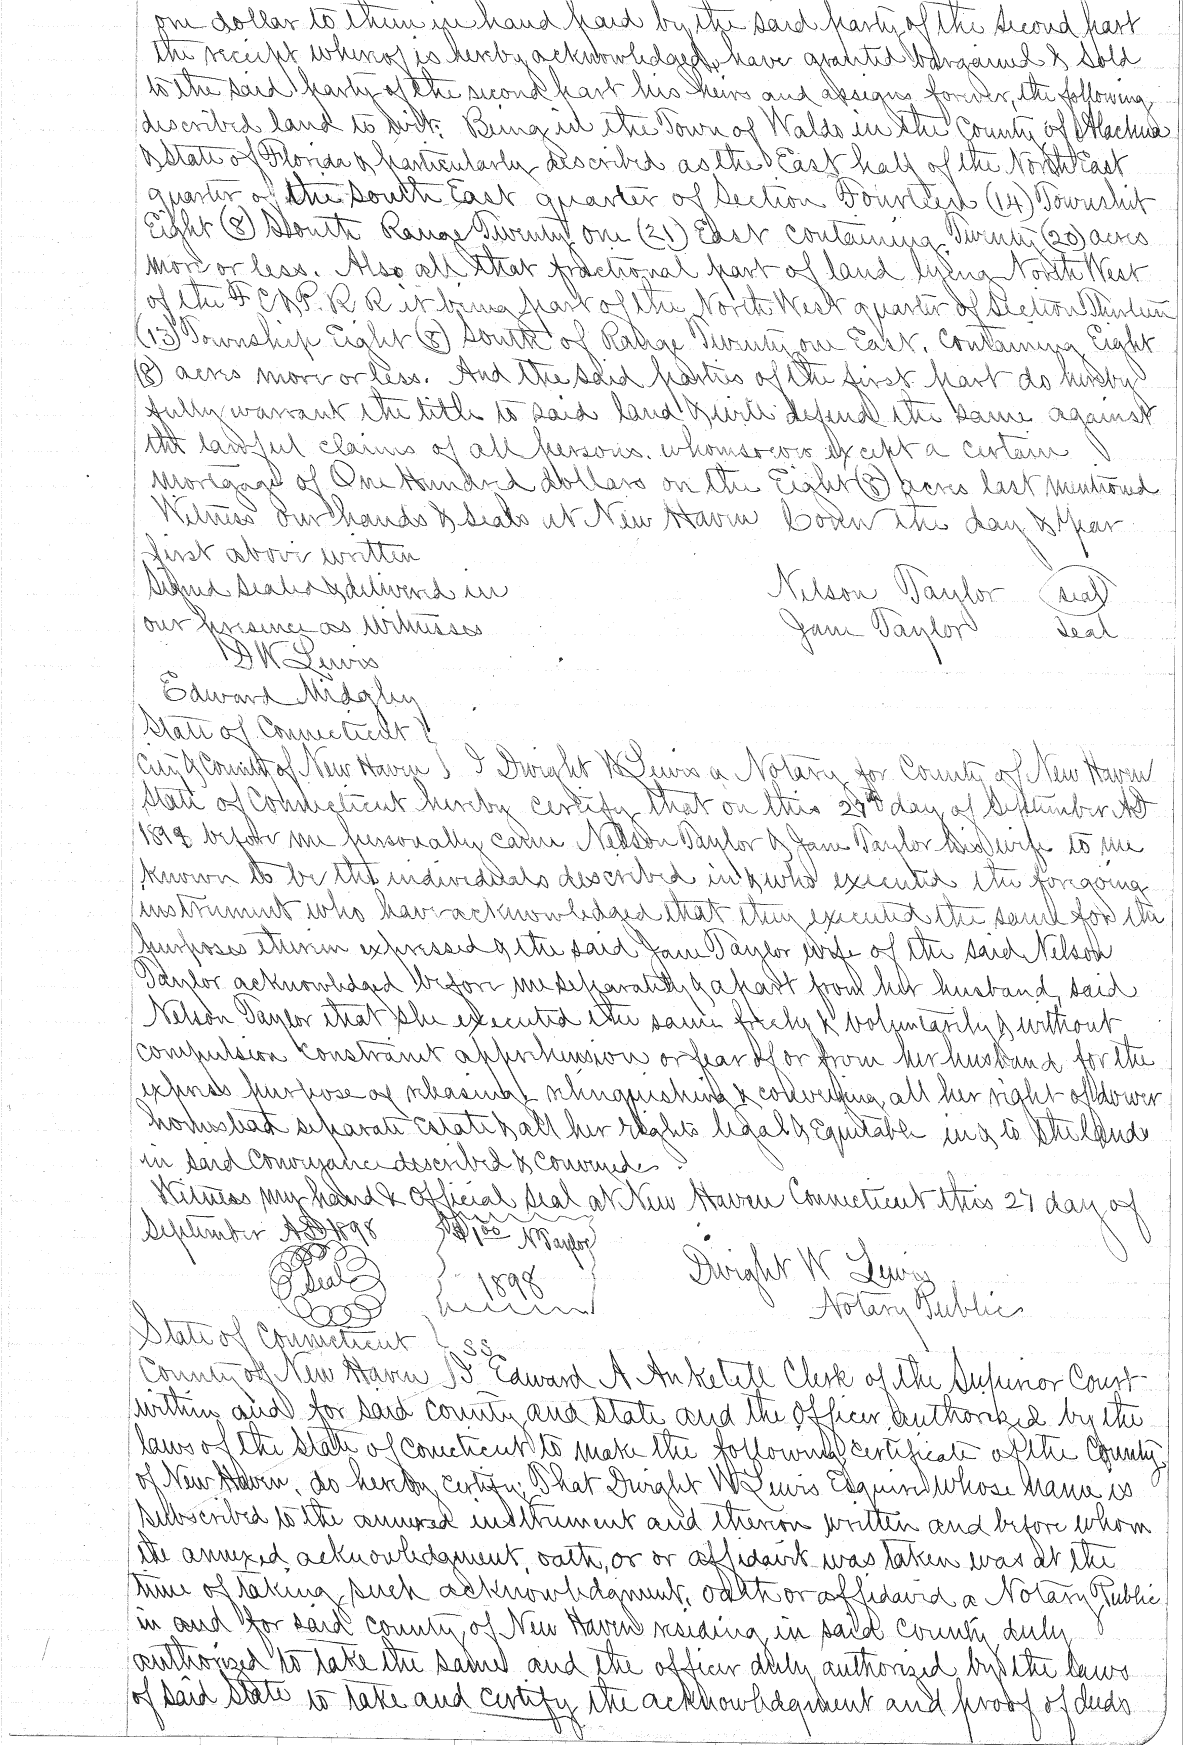 one dollar to them in hand paid by the said party of the second part
the receipt whereof is hereby acknowledged, have granted bargained & sold
to the said party of the second part his heirs and assigns forever, the following
described land to wit: Being in the Town of Waldo in the County of Alachua
& State of Florida & particularly described as the East half of the North East
quarter of the South East quarter of Section Fourteen (14) Township
Eight (8) South Range Twenty one (21) East containing Twenty (20) acres
more or less. Also all that fractional part of land lying North West
of the F C & P. R R it being part of the North West quarter of Section Thirteen
(13) Township Eight (8) South of Range Twenty one East. containing Eight
(8) acres more or less. And the said parties of the first part do hereby
fully warrant the title to said land & will defend the same against
the lawful claims of all persons. whomsoever except a certain
mortgage of One Hundred dollars on the Eight (8) acres last mentioned
Witness our hands & seals at New Haven Conn the day & Year
first above written
Signed Sealed & delivered in Nelson Taylor seal
our presence as Witnesses Jane Taylor seal
D W Lewis
Edward Midgley
State of Connecticut }
City & County of New Haven } I Dwight W Lewis a Notary for County of New Haven
State of Connecticut hereby certify that on this 27th day of September AD
1898 before me personally came Nelson Taylor & Jane Taylor his wife to me
known to be the individuals described in & who executed the foregoing
instrument who have acknowledged that they executed the same for the
purposes therein expressed & the said Jane Taylor wife of the said Nelson
Taylor acknowledged before me separately & apart from her husband, said
Nelson Taylor that she executed the same freely & voluntarily & without
compulsion constraint apprehension or fear of or from her husband for the
express purpose of releasing relinquishing & conveying all her right of dower
homestead separate Estate & all her rights legal & Equitable in & to the lands
in said Conveyance described & Conveyed.
Witness my hand & Official Seal at New Haven Connecticut this 27 day of
September AD 1898 $1.00 N Taylor
Seal 1898 Dwight W Lewis
Notary Public
State of Connecticut } ss
County of New Haven } I Edward A Anketell Clerk of the Superior Court
within and for said county and State and the Officer authorized by the
laws of the State of Conecticut to make the following certificate of the County
of New Haven, do hereby certify, That Dwight W Lewis Esquire whose name is
subscribed to the annexed instrument and thereon written and before whom
the annexed acknowledgment, oath, or or affidavit was taken was at the
time of taking such acknowledgment, oath or affidavid a Notary Public
in and for said county of New Haven residing in said County duly
authorized to take the same and the officer duly authorized by the laws
of said State to take and certify the acknowledgment and proof of deeds